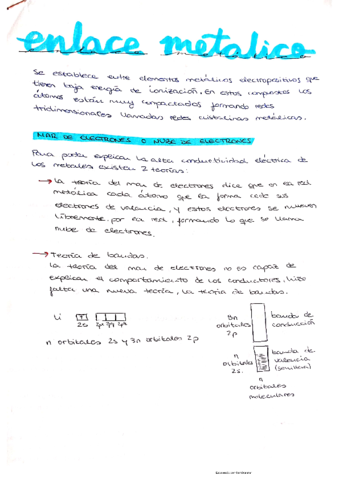 enlace metalico
Se establece entre elementos metálicos electropositivos que
tienen baja energía de ionización. En estos compuestos los
átomos están muy empaquetados formando redes
tridimensionales llamadas redes cristalinas metálicas.
MAR DE ELECTRONES O NUBE DE ELECTRONES
Para poder explicar la alta conductividad eléctrica de
los metales existen 2 teorías:
→ La teoría del mar de electrones dice que en la red
metálica cada átomo que la forma cede sus
electrones de valencia, y estos electrones se mueven
libremente por la red, formando lo que se llama
nube de electrones.
→ Teoría de bandas.
La teoría del mar de electrones no es capaz de
explicar el comportamiento de los conductores. Hizo
falta una nueva teoría, la teoría de bandas.
Li
2s
n orbitales 2s y 3n orbitales 2p
3n
orbitales
2p
banda de
conducción
n
orbitales
2s.
banda de
valencia
(semillena)
n
orbitales
moleculares